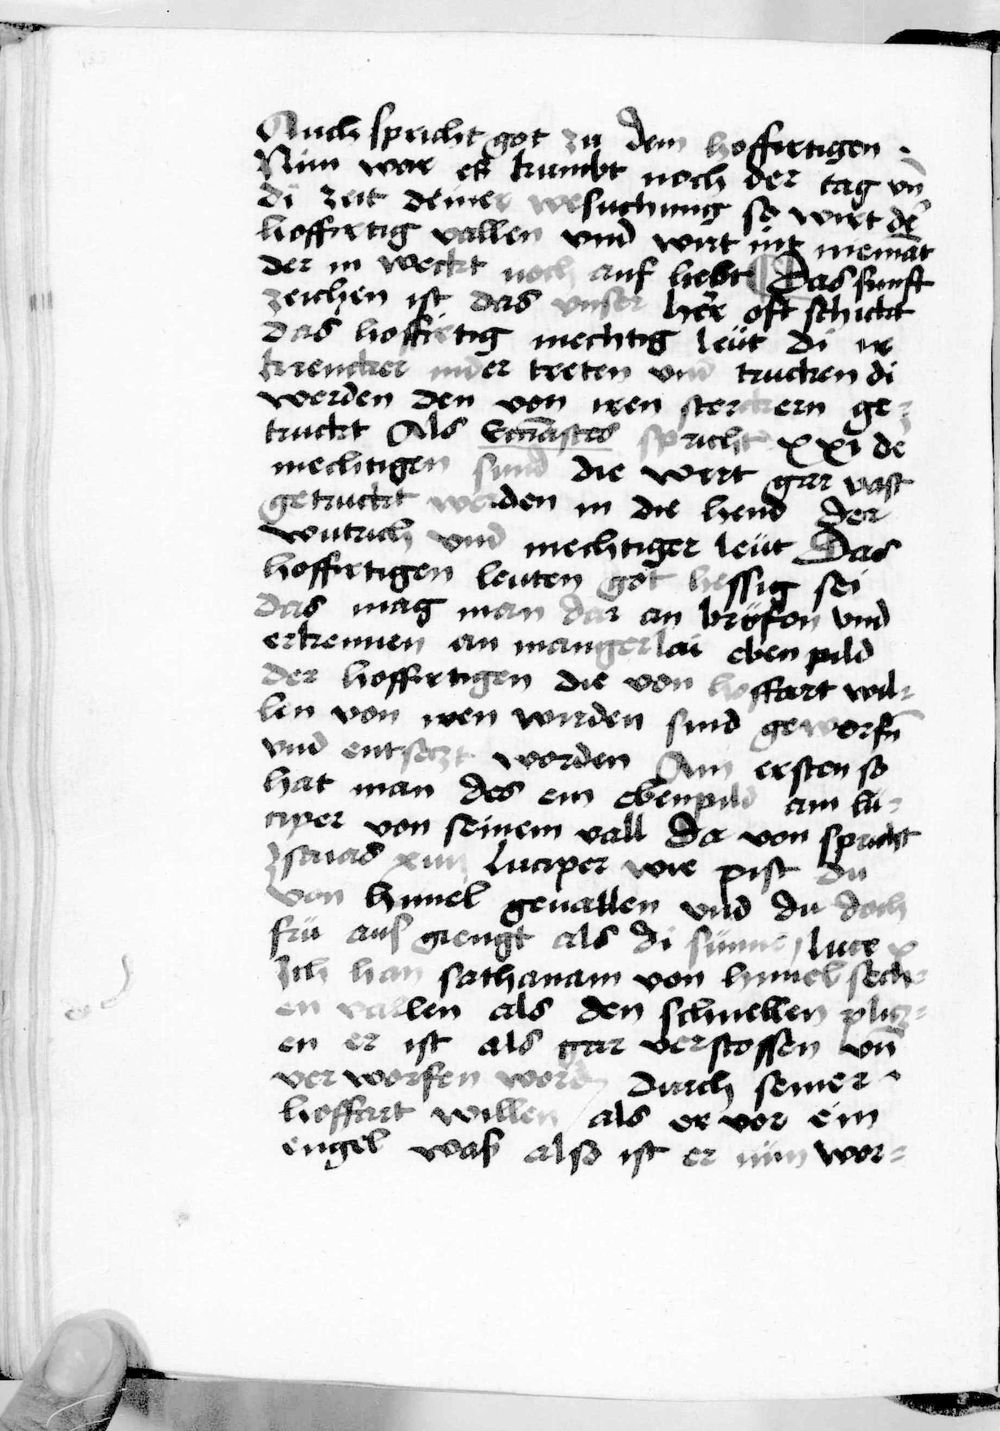 Auch spricht got zu dem hoffirtigen .
Nim war es kumbt noch der tag vn̄
di zeit deiner wesuchung so wirt d̄e
hoffirtig vallen vnd wirt nit niemāt
der in weckt noch auf hebt Das funft
zeichen ist das vnser her̄ oft schickt
das hoffirtig mechtig leüt di ir
krencker nider treten vnd trucken di
werden den von iren sterckern ge-
truckt Als Eccl̄iastes spricht xxi de
mechtigen sind die wert gar vast
getruckt werden in die hend der
wutrich vnd mechtiger leüt Das
hoffirtigen leuten got hessig sei
das mag man dar an brüfen vnd
erkennen an mangerlai ebenpild
der hoffirtigen die von hoffart wil-
len von iren wirden sind geworfn̄
vnd entseczt worden Am ersten so
hat man des ein ebenpild am lu-
ciper von seinem vall Da von spricht
Isaias xiiij Luciper wie pist du
von himel geuallen vnd du doch
frü auf giengt als di sünne luce x
Ich han sathanam von himel sech-
en vallen als den schnellen plicz-
en er ist als gar verstossen vn̄
ver worfen word durch seiner
hoffart willen als er vor ein
engel was also ist er nun wor-